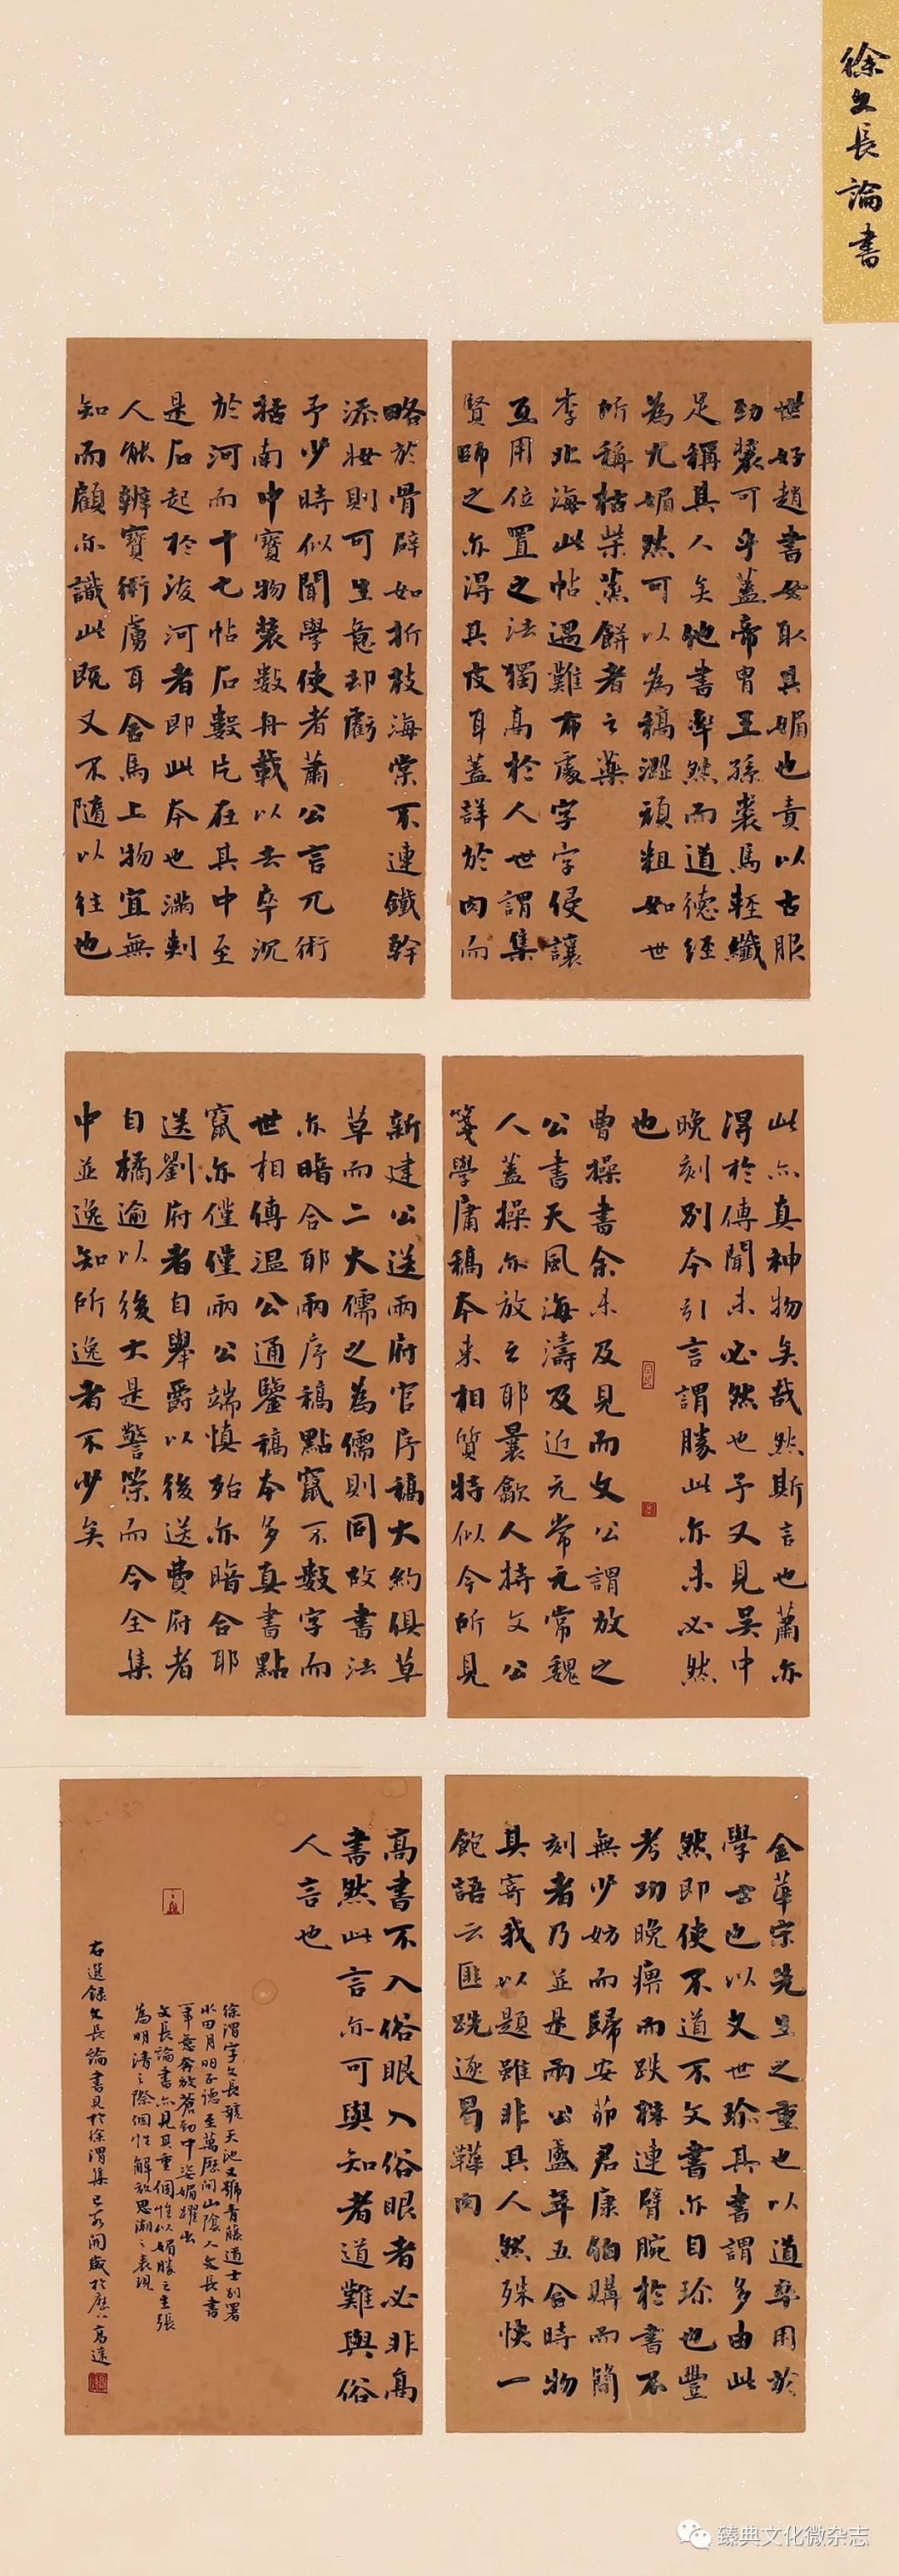 徐文長論書
世好趙書女取其媚也責以古服
勁裝可乎蓋帝胄王孫裘馬輕纖
足稱其人矣他書率然而道德經
為尤媚然可以為槁澀頑粗如世
所稱枯柴蒸餅者之藥
李北海此帖遇難布處字字侵讓
互用位置之法獨高於人世謂集
賢師之亦得其皮耳蓋詳於肉而
略於骨辟如折枝海棠不連鐵幹
添妝則可生意却虧
予少時似聞學使者蕭公言兀術
括南中寶物裝數舟載以去卒沉
於河而十七帖石數片在其中至
是石起於浚河者即此本也滿剌
人能辨寶術虜耳舍馬上物宜無
知而顧亦識此既又不隨以往也
此亦真神物矣哉然斯言也蕭亦
得於傳聞未必然也予又見吳中
晚刻別本引言謂勝此亦未必然
也
曹操書余未及見而文公謂放之
公書天風海濤及近元常元常魏
人蓋操亦放之耶曩歙人持文公
箋學庸稿本來相質特似今所見
新建公送兩府官序稿大約俱草
草而二大儒之為儒則同故書法
亦暗合耶兩序稿點竄不數字而
世相傳溫公通鑒稿本多真書點
竄亦僅僅兩公端慎殆亦暗合耶
送劉府者自舉爵以後送費府者
自橘逾以後大是警策而今全集
中並逸知所逸者不少矣
金華宋先生之重也以道卒用於
學士也以文世珍其書謂多由此
然即使不道不文書亦自珍也豐
考功晚痹而跌梯連臂腕於書不
無少妨而歸安茆君康伯購而簡
刻者乃並是兩公盛年五合時物
其寄我以題雖非其人然殊快一
飽語云匪跣逐曷鞾肉
高書不入俗眼入俗眼者必非高
書然此言亦可與知者道難與俗
人言也
徐渭字文長號天池又號青藤道士別署
水田月明正德至萬歷間山陰人文長書
筆意奔放蒼勁中姿媚躍出
文長論書亦見其重個性以媚勝之主張
為明清之際個性解放思潮之表現
右選錄文長論書見於徐渭集己亥開歲於
高達
臻典文化微杂志